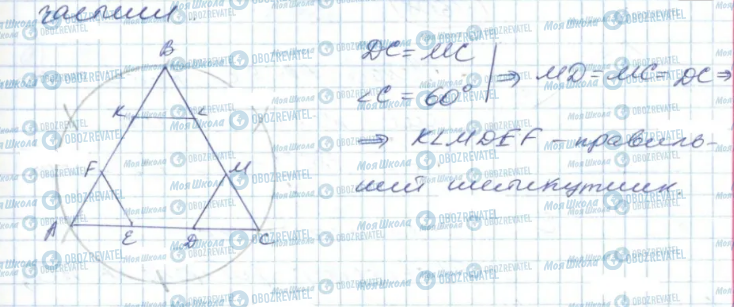 частини
B
DC = MC
∠C = 60° | ⇒ MD = MC = DC ⇒
K L
⇒ KLMDEF – правиль-
F M
ний шестикутник
A E D C
Моя Школа OBOZREVATEL